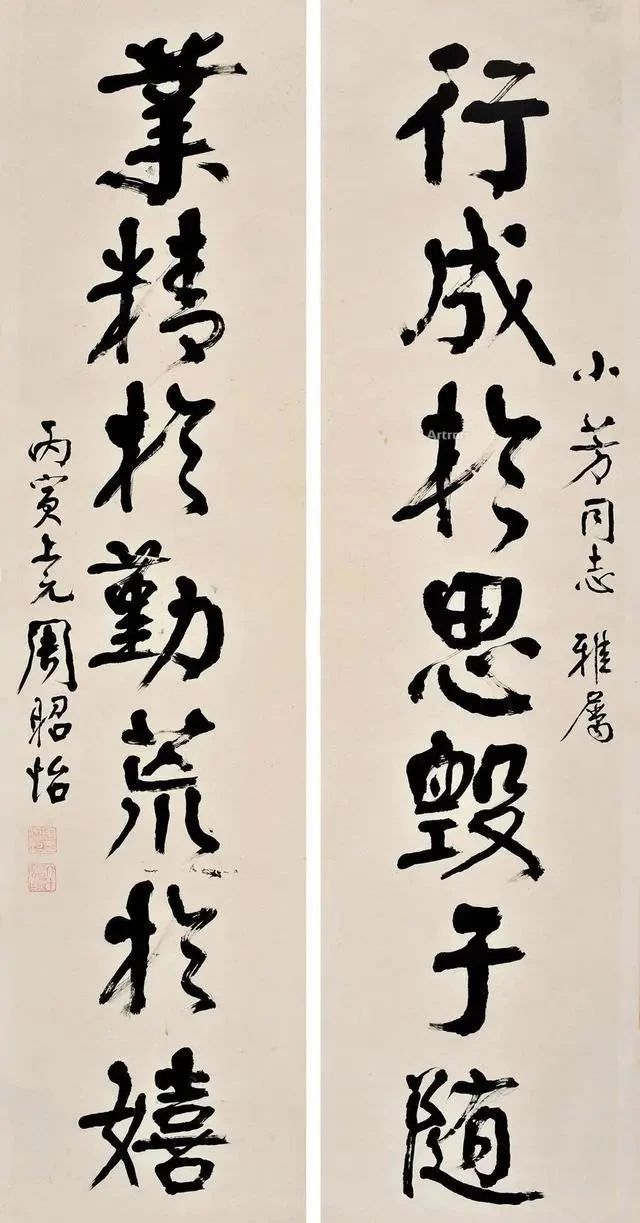 小芳同志 雅属
行成於思毁于随
業精於勤荒於嬉
丙寅上元 周昭怡
Artron